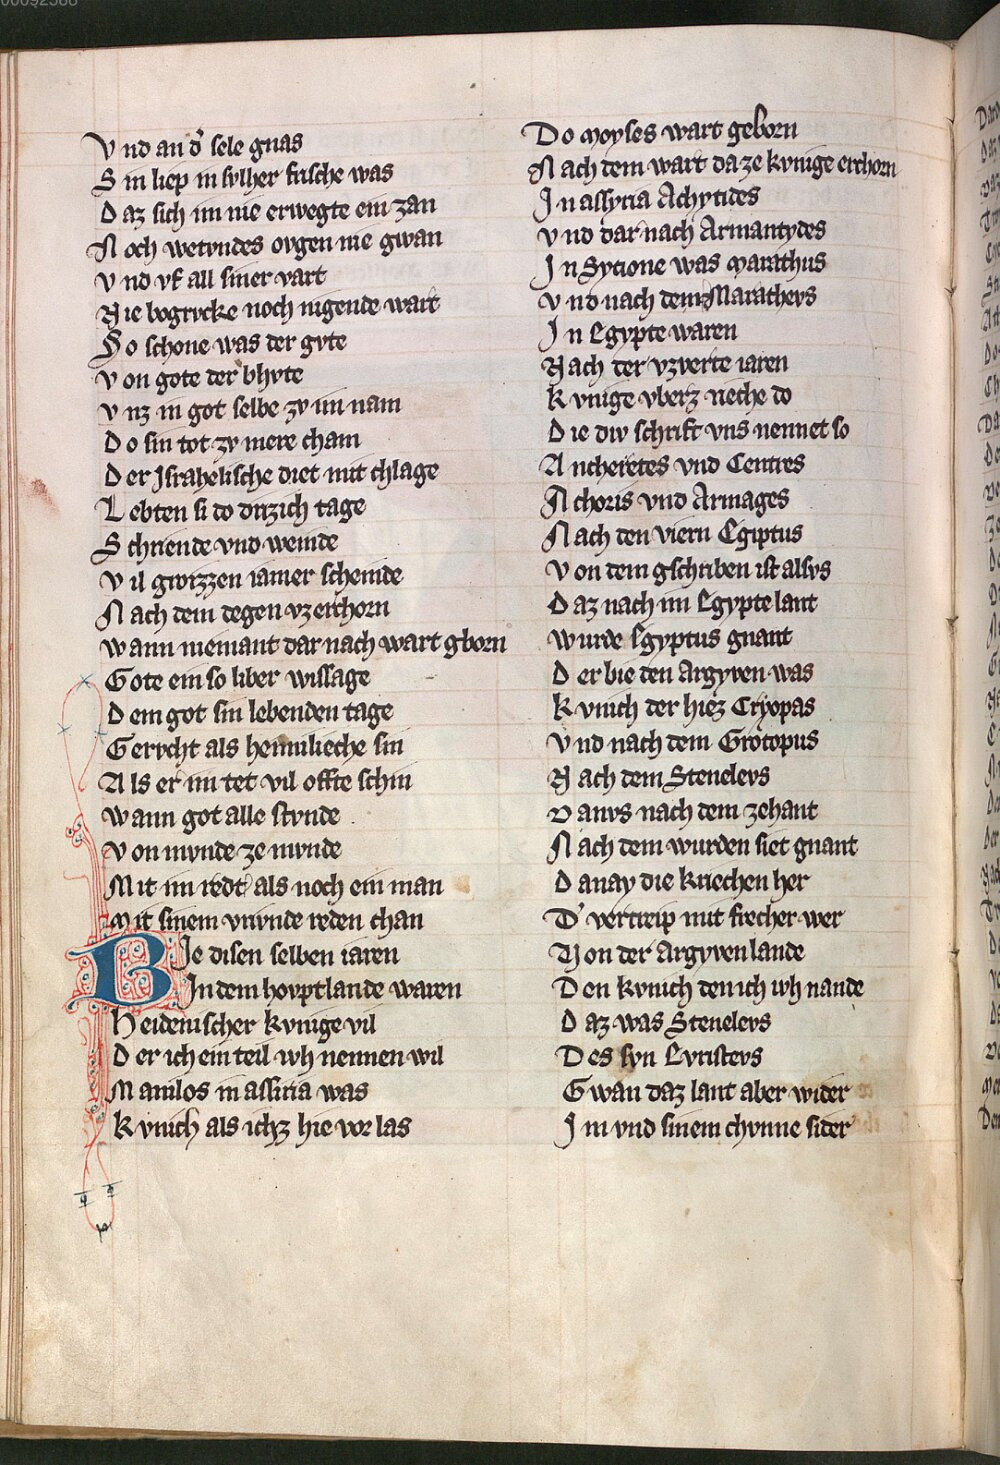 00092588
Vnd an d' sele gnas
Sin liep in sylher frische was
Daz sich im nie erwegte ein zan
Noch wetvndes ovgen nie gwan
Vnd vf all siner vart
Nie bogrvcke noch nigende wart
So schone was der gvte
Von gote der bhvte
Vnz in got selbe zv im nam
Do sin tot zv mere cham
Der Israhelische diet mit chlage
Lebten si do drizich tage
Schriende vnd weinde
Vil gwizzen iamer scheinde
Nach dem degen vz erchorn
Wann niemant dar nach wart gborn
Gote ein so liber wissage
Dem got sin lebenden tage
Gervcht als heimlieche sin
Als er im tet vil offte schin
Wann got alle stvnde
Von mvnde ze mvnde
Mit im redt als noch ein man
Mit sinem vrivnde reden chan
BIe disen selben iaren
In dem hovptlande waren
Heidenischer kvnige vil
Der ich ein teil iwh nennen wil
Manilos in assiria was
Kvnich als ichz hie vor las
Do moyses wart geborn
Nach dem wart da ze kvnige erchorn
In assyria Achytides
Vnd dar nach Armantydes
In Sycione was marathus
Vnd nach dem Marathevs
In Egypte waren
Nach der vzverte iaren
Kvnige vberz neche do
Die div schrift vns nennet so
Ancheretes vnd Centres
Achoris vnd Armages
Nach den viern Egiptus
Von dem gschriben ist alsvs
Daz nach im Egypte lant
Wurde Egyptus gnant
Der bie den Argyven was
Kvnich der hiez Cryopas
Vnd nach dem Grotopus
Nach dem Stenelevs
Danvs nach dem zehant
Nach dem wurden siet gnant
Danay die kriechen her
D' vertreip mit frecher wer
Von der Argyven lande
Den kvnich den ich iwh nande
Daz was Stenelevs
Des svn Evristevs
Gwan daz lant aber wider
Im vnd sinem chvnne sider